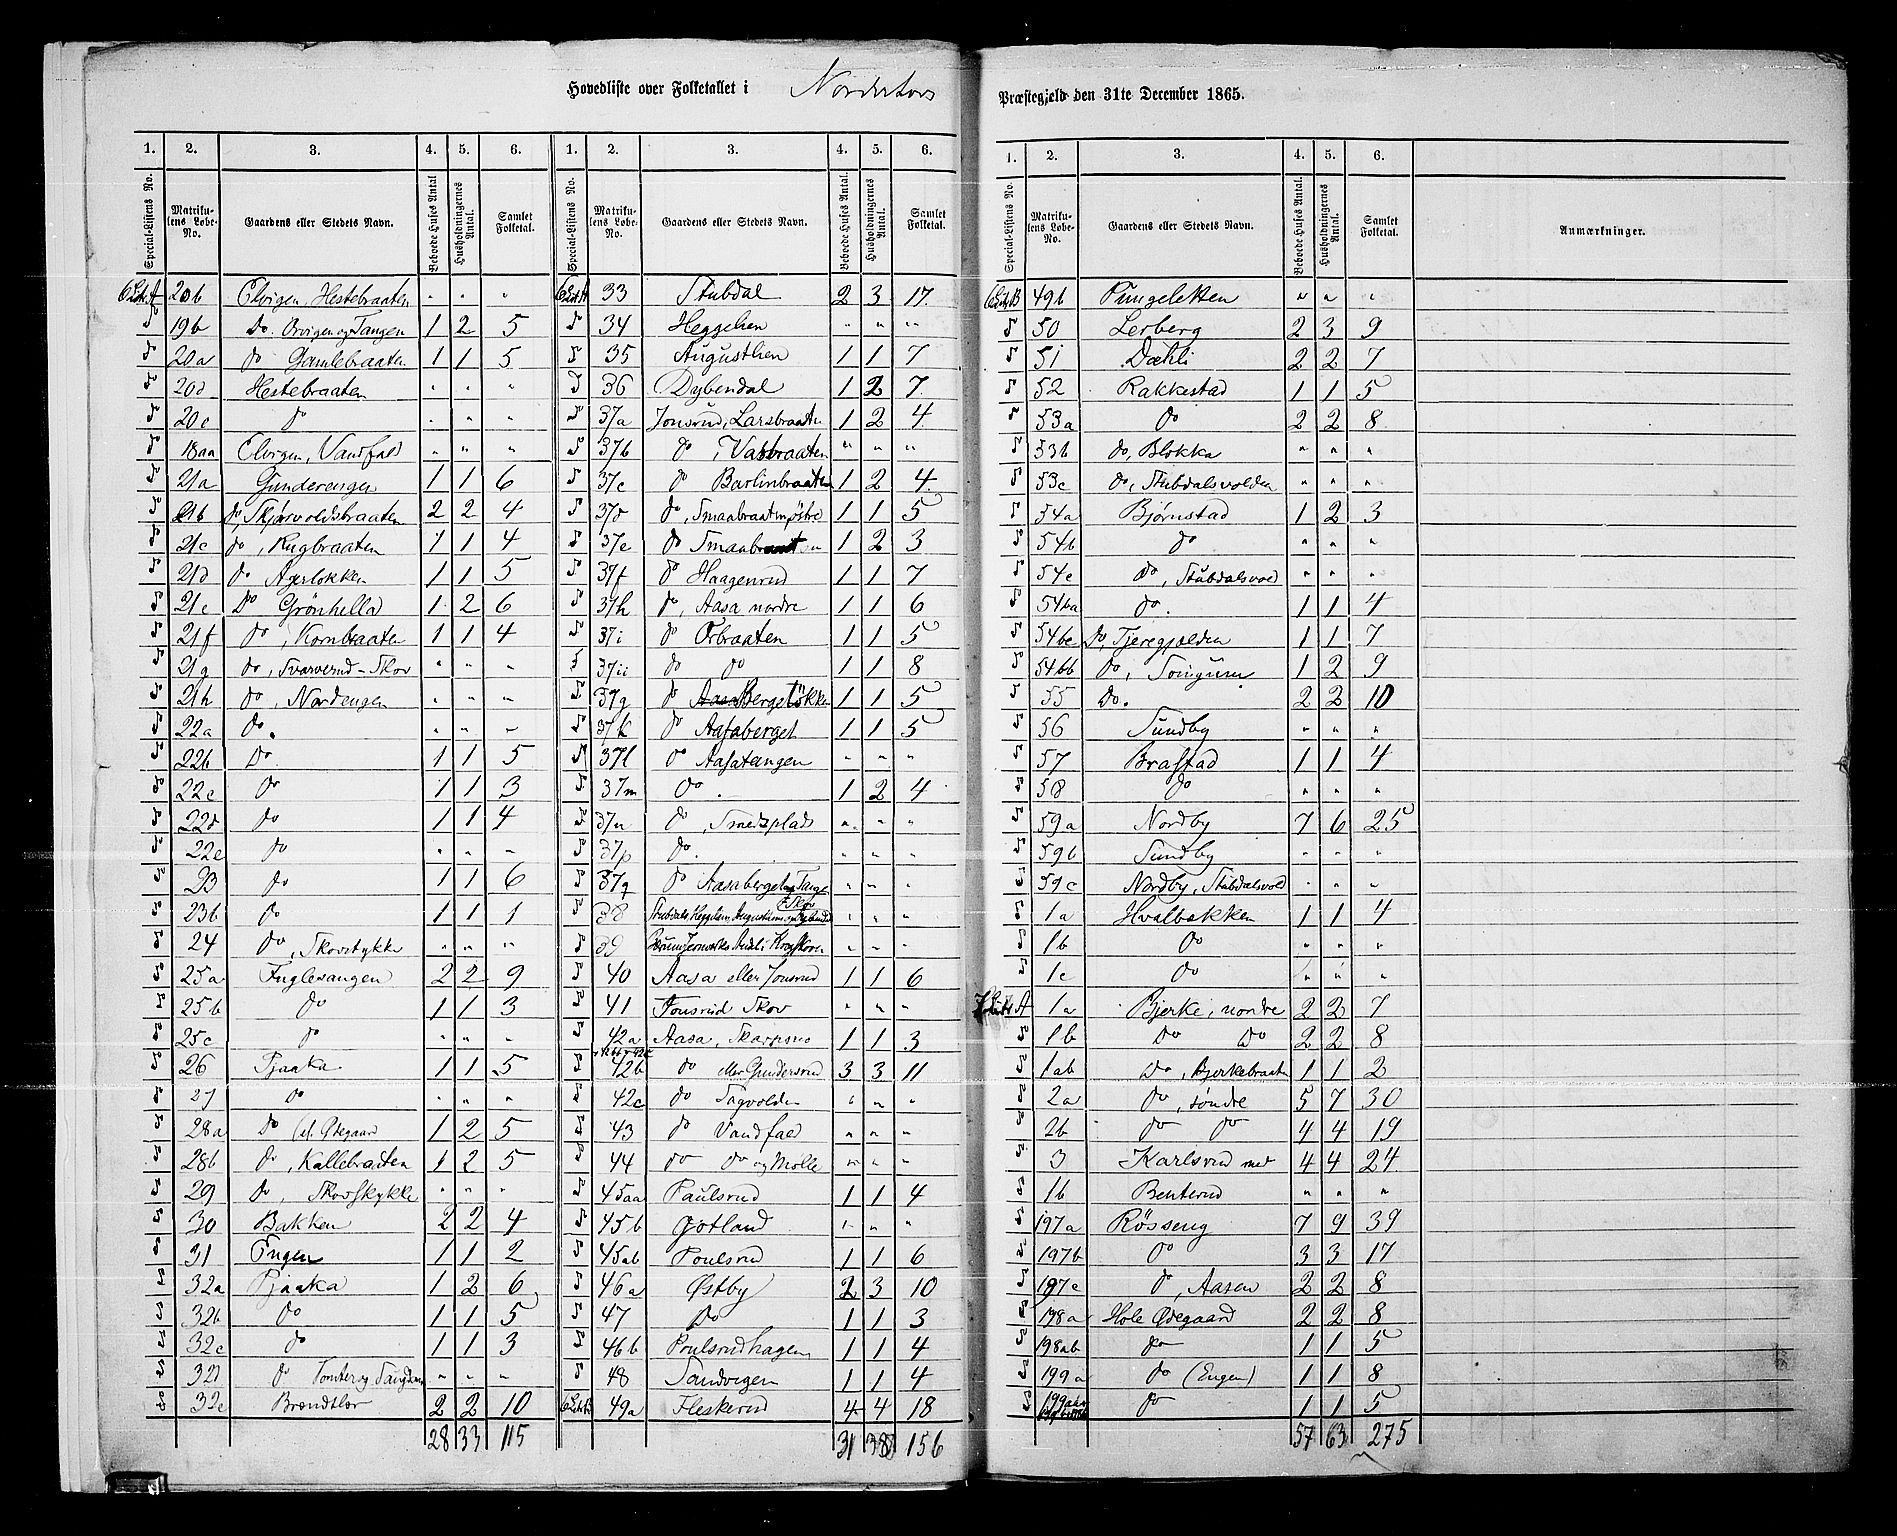 Hovedliste over Folketallet i Norderhovs Præstegjeld den 31te December 1865.
1. 2. 3. 4. 5. 6. 1. 2. 3. 4. 5. 6.
Special-Listens No. Matrikulens Løbe-No. Gaardens eller Stedets Navn. Beboede Huses Antal Husholdningernes Antal. Samlet Folketal. Special-Listens No. Matrikulens Løbe-No. Gaardens eller Stedets Navn. Beboede Huses Antal. Husholdningernes Antal. Samlet Folketal.
20b Elvigen, Hestebraaten " " "
19b Do. Orvigen og Tangen 1 2 5
20a do Gamlebraaten 1 1 5
20d Hestebraaten " " "
20c do " " "
18aa Elvigen, Vandfald " " "
21a Gunderengen 1 1 6
21b do Skjørvoldsbraaten 2 2 4
21c do, Rugbraaten 1 1 4
21d do Agerløkken 1 1 5
21e Do Grønhella 1 2 6
21f do, Kornbraaten 1 1 4
21g do, Svarverud-Skov " " "
21h do, Nordengen " " "
22a do. " " "
22b Do 1 1 5
22c do 1 1 3
22d do 1 1 4
22e do " " "
23 do 1 1 6
23b do 1 1 1
24 do, Skovstykke " " "
25a Fuglesangen 2 2 9
25b do 1 1 3
25c do " " "
26 Tjaaka 1 1 5
27 do " " "
28a Do (el. Ødegaard 1 2 5
28b do, Kallebraaten 1 2 5
29 do, Skovstykke " " "
30 Bakken 2 2 4
31 Engen 1 1 2
32a Tjaaka 1 2 6
32b do 1 1 5
32c do 1 1 3
32d do " " "
32e 2 2 10
28 33 115
33 Stubdal 2 3 17
34 Heggelien " " "
35 Augustlien 1 1 7
36 Dybendal 1 2 7
37a Jonsrud, Larsbraaten 1 2 4
37b do " " "
37c do Barlinbraaten 1 2 4
37d do, Smaabraaten østre 1 1 5
37e do Smaabraaten 1 2 3
37f do Haagenrud 1 1 7
37h do, Aasa nordre 1 1 6
37i do Orbraaten 1 1 5
37ii do do 1 1 8
37g do Bergeløkken 1 1 5
37k do Aasaberget 1 1 5
37l do Aasatangen " " "
37m Do. 1 2 4
37n do, Smedsplads " " "
37p do. " " "
37q do Aasaberget og Tangen " " "
38 Stubdals, Heggeliens, Augustliens og Dybendal Skov " " "
39 " " "
40 Aasa eller Jonsrud 1 1 6
41 Jonsrud Skov " " "
42a Aasa, Skarpsno 1 1 3
42b do eller Gundersrud 3 3 11
42c do Sagvolden " " "
43 do Vandfald " " "
44 do do og Mølle " " "
45aa Paulsrud 1 1 4
45b Gotland " " "
45ab Poulsrud 1 1 6
46a Østby 2 3 10
47 Do 1 1 3
46b Poulsrudhagen 1 1 4
48 Sandvigen 1 1 4
49a Fleskerud 4 4 18
31 38 156
1. 2. 3. 4. 5. 6.
Special-Listens No. Matrikulens Løbe-No. Gaardens eller Stedets Navn. Beboede Huses Antal. Husholdningernes Antal. Samlet Folketal. Anmærkninger.
49b Pungeletten " " "
50 Lerberg 2 3 9
51 Dæhli 2 2 7
52 Rakkestad 1 1 5
53a do 2 2 8
53b do, Blokka " " "
53c do, Stubdalsvolden " " "
54a Bjørnstad 1 2 3
54b do " " "
54c do, Stubdalsvold " " "
54ba do. 1 1 4
54bc do, Tjeregjølden 1 1 7
54bb do, 1 2 9
55 Do. 2 2 10
56 Sundby " " "
57 Brastad 1 1 4
58 do " " "
59a Nordby 7 6 25
59b Sundby " " "
59c Nordby, Stubdalsvold " " "
1a Hvalbakken 1 1 4
1b do " " "
1c do " " "
1a Bjerke, nordre 2 2 7
1b Do Do 2 2 8
1ab Do, Bjerkebraaten 1 1 2
2a do, søndre 5 7 30
2b do do 4 4 19
3 Karlsrud med 4 4 24
1b Benterud " " "
197a Røsseng 7 9 39
197b do 3 3 17
197c do, Aasen 2 2 8
198a Hole Ødegaard 2 2 8
198ab do 1 1 5
199a do (Engen) 1 1 8
do 1 1 5
57 63 275